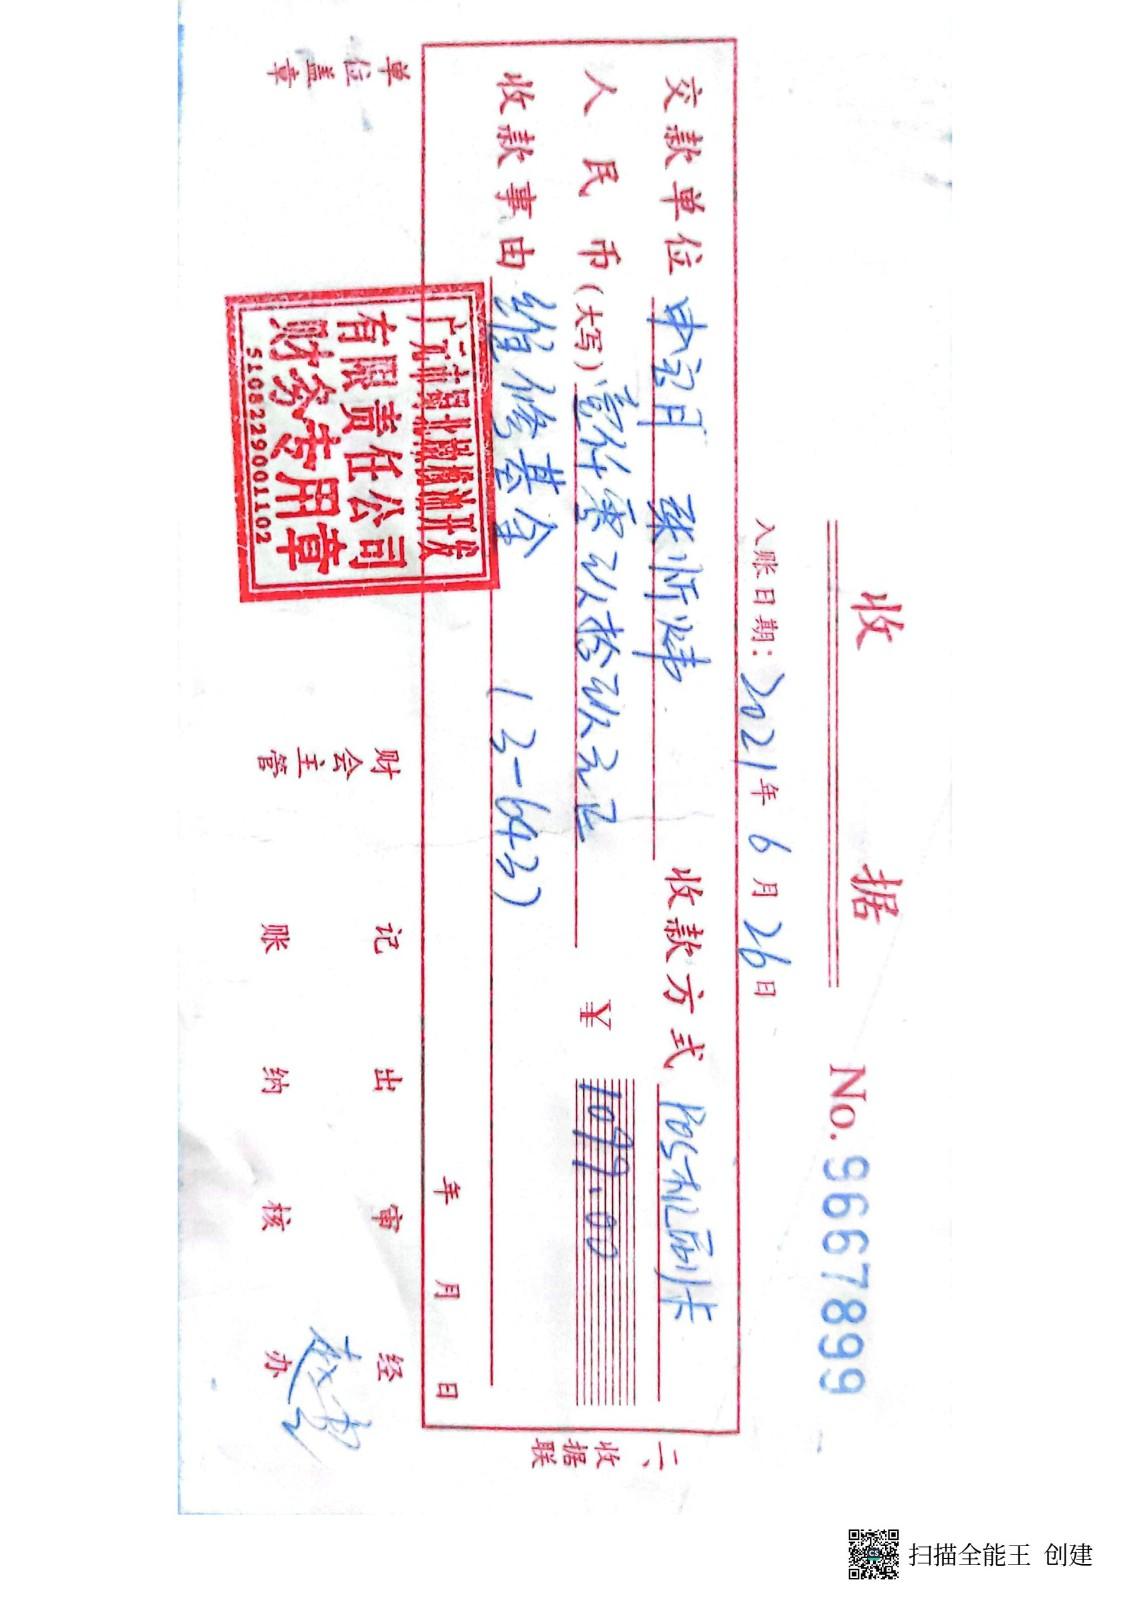 收 据
No. 9667899
入账日期: 2021年6月26日
交款单位 申云月 张忻炜 收款方式 POS机刷卡
人民币(大写) 壹仟零玖拾玖元正 ¥ 1099.00
收款事由 维修基金 (3-643)
年 月 日
二、收据联
广元市蜀北橄榄油开发
有限责任公司
财务专用章
5108229001102
单位盖章 财会主管 记账 出纳 审核 经办
扫描全能王 创建